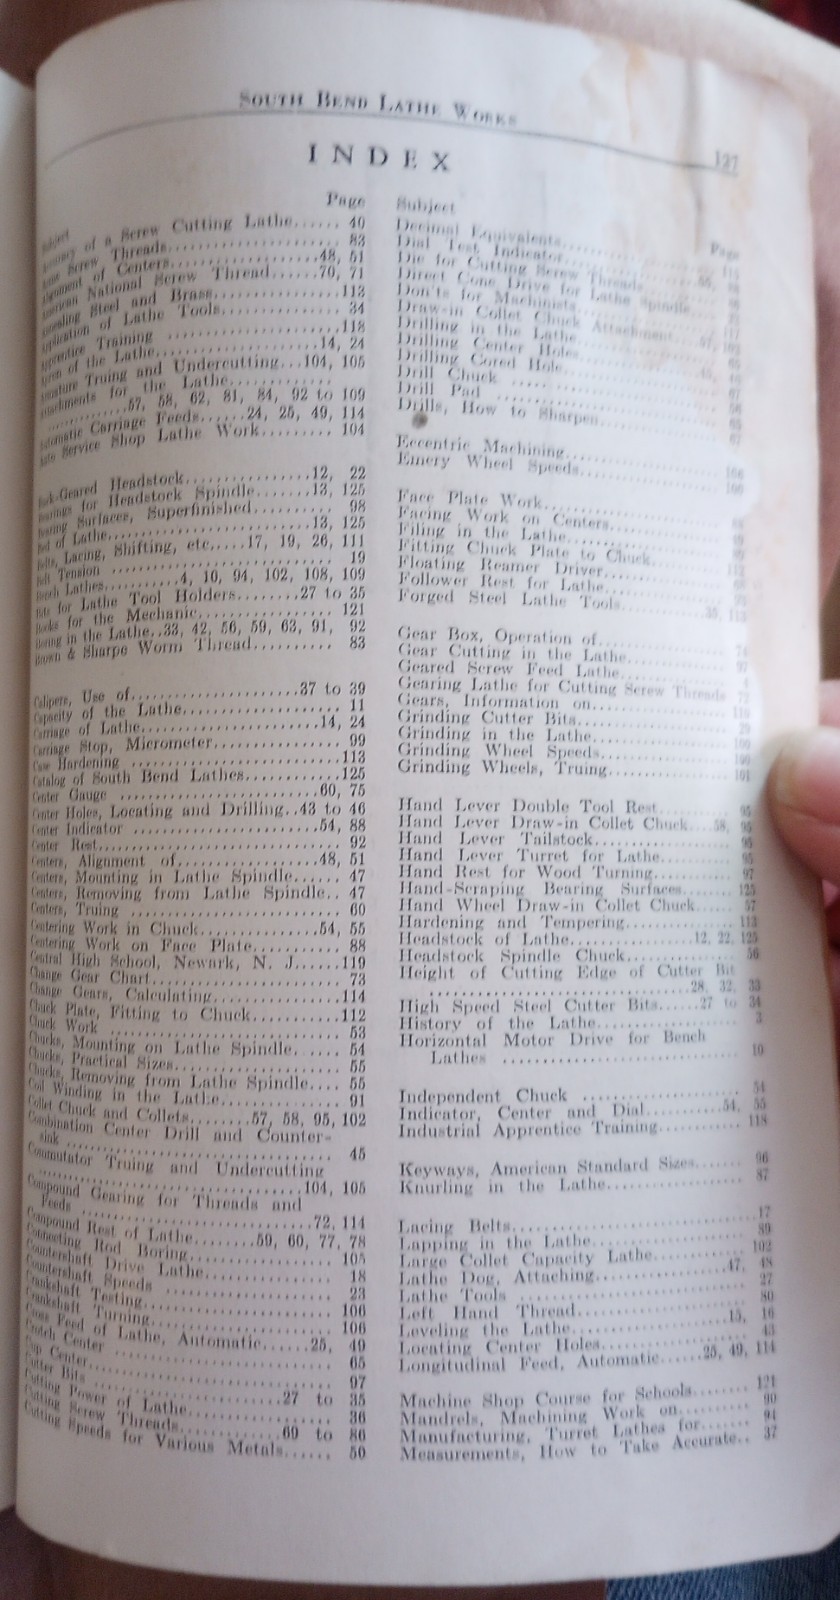 SOUTH BEND LATHE WORKS
127
INDEX
Subject Page
of a Screw Cutting Lathe...... 40
Screw Threads........................ 83
of Centers.....................48, 51
National Screw Thread.......70, 71
Steel and Brass................113
of Lathe Tools............... 34
Training ......................118
of the Lathe.......................14, 24
Truing and Undercutting...104, 105
for the Lathe..............
............57, 58, 62, 81, 84, 92 to 109
Automatic Carriage Feeds......24, 25, 49, 114
Auto Service Shop Lathe Work......... 104
Back-Geared Headstock................12, 22
Bearings for Headstock Spindle.......13, 125
Bearing Surfaces, Superfinished.......... 98
Bed of Lathe..........................13, 125
Belts, Lacing, Shifting, etc.....17, 19, 26, 111
Belt Tension ............................ 19
Bench Lathes..........4, 10, 94, 102, 108, 109
Bits for Lathe Tool Holders........27 to 35
Books for the Mechanic.................. 121
Boring in the Lathe..33, 42, 56, 59, 63, 91, 92
Brown & Sharpe Worm Thread.......... 83
Calipers, Use of......................37 to 39
Capacity of the Lathe..................... 11
Carriage of Lathe.......................14, 24
Carriage Stop, Micrometer............... 99
Case Hardening ........................113
Catalog of South Bend Lathes............125
Center Gauge .......................60, 75
Center Holes, Locating and Drilling..43 to 46
Center Indicator ........................54, 88
Center Rest................................ 92
Centers, Alignment of..................48, 51
Centers, Mounting in Lathe Spindle...... 47
Centers, Removing from Lathe Spindle.. 47
Centers, Truing ........................... 60
Centering Work in Chuck...............54, 55
Centering Work on Face Plate........... 88
Central High School, Newark, N. J......119
Change Gear Chart........................ 73
Change Gears, Calculating................114
Chuck Plate, Fitting to Chuck...........112
Chuck Work .............................. 53
Chucks, Mounting on Lathe Spindle...... 54
Chucks, Practical Sizes................... 55
Chucks, Removing from Lathe Spindle.... 55
Coil Winding in the Lathe............... 91
Collet Chuck and Collets........57, 58, 95, 102
Combination Center Drill and Counter-
sink .................................. 45
Commutator Truing and Undercutting
..................................104, 105
Compound Gearing for Threads and
Feeds ..............................72, 114
Compound Rest of Lathe........59, 60, 77, 78
Connecting Rod Boring.................. 105
Countershaft Drive Lathe................ 18
Countershaft Speeds ..................... 23
Crankshaft Testing........................ 106
Crankshaft Turning....................... 106
Cross Feed of Lathe, Automatic......25, 49
Crotch Center ............................ 65
Cup Center............................... 97
Cutter Bits ........................27 to 35
Cutting Power of Lathe.................. 36
Cutting Screw Threads.............69 to 86
Cutting Speeds for Various Metals...... 50
Subject Page
Decimal Equivalents
Dial Test Indicator
Die for Cutting Screw Threads
Direct Cone Drive for Lathe Spindle
Don'ts for Machinists
Draw-in Collet Chuck Attachment
Drilling in the Lathe
Drilling Center Holes
Drilling Cored Hole
Drill Chuck
Drill Pad
Drills, How to Sharpen
Eccentric Machining
Emery Wheel Speeds
Face Plate Work
Facing Work on Centers
Filing in the Lathe
Fitting Chuck Plate to Chuck
Floating Reamer Driver
Follower Rest for Lathe
Forged Steel Lathe Tools
Gear Box, Operation of
Gear Cutting in the Lathe
Geared Screw Feed Lathe
Gearing Lathe for Cutting Screw Threads
Gears, Information on
Grinding Cutter Bits
Grinding in the Lathe
Grinding Wheel Speeds
Grinding Wheels, Truing................101
Hand Lever Double Tool Rest.......... 95
Hand Lever Draw-in Collet Chuck...58, 95
Hand Lever Tailstock.................... 95
Hand Lever Turret for Lathe............ 95
Hand Rest for Wood Turning........... 97
Hand-Scraping Bearing Surfaces........125
Hand Wheel Draw-in Collet Chuck...... 57
Hardening and Tempering...............113
Headstock of Lathe................12, 22, 125
Headstock Spindle Chuck................ 56
Height of Cutting Edge of Cutter Bit
..................................28, 32, 33
High Speed Steel Cutter Bits......27 to 34
History of the Lathe..................... 3
Horizontal Motor Drive for Bench
Lathes ................................ 10
Independent Chuck ...................... 54
Indicator, Center and Dial...........54, 55
Industrial Apprentice Training...........118
Keyways, American Standard Sizes....... 96
Knurling in the Lathe.................... 87
Lacing Belts................................17
Lapping in the Lathe..................... 89
Large Collet Capacity Lathe.............102
Lathe Dog, Attaching.................47, 48
Lathe Tools ............................. 27
Left Hand Thread........................ 80
Leveling the Lathe....................15, 16
Locating Center Holes................... 43
Longitudinal Feed, Automatic......25, 49, 114
Machine Shop Course for Schools........121
Mandrels, Machining Work on........... 90
Manufacturing, Turret Lathes for....... 94
Measurements, How to Take Accurate.. 37